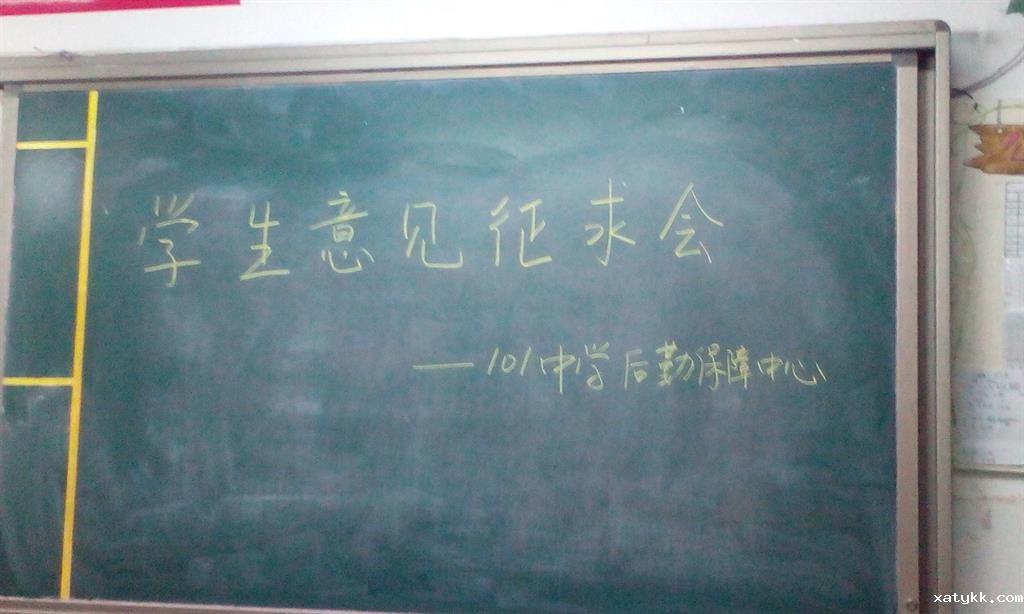 学生意见征求会
—101中学后勤保障中心
xatykk.com